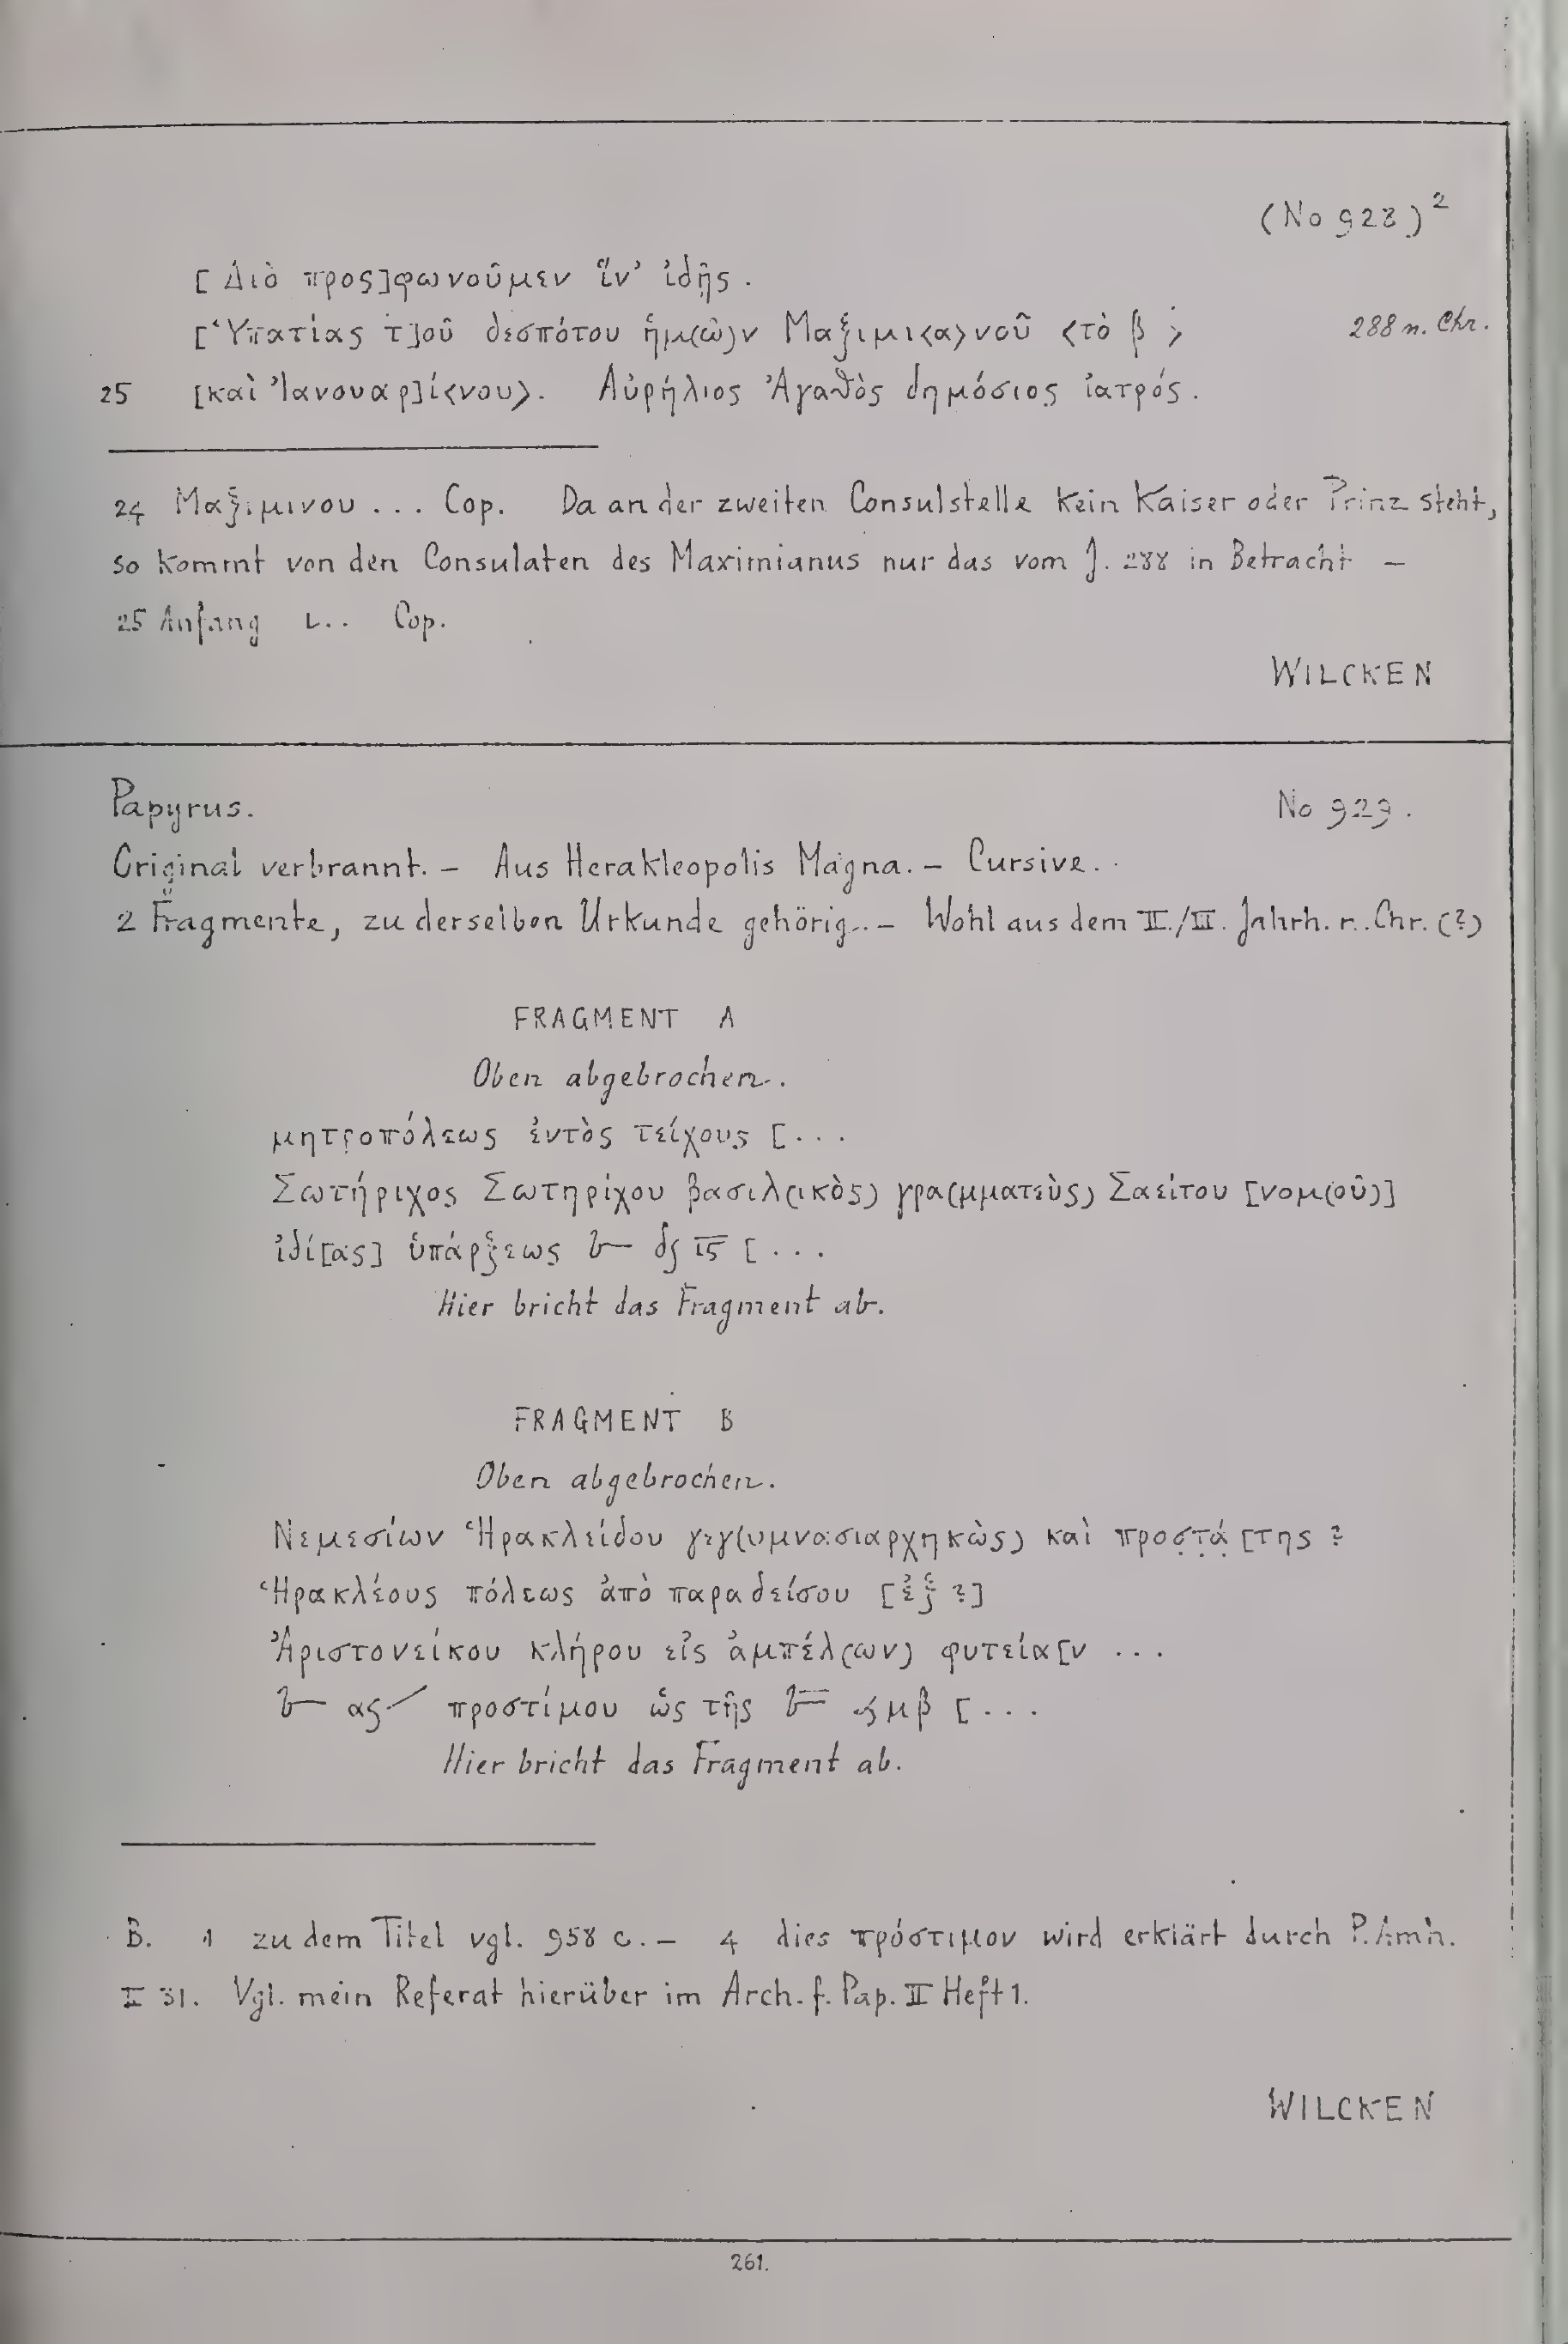 (No 928)²
[Διὸ προς]φωνοῦμεν ἵν' ἰδῇς.
[Ὑπατίας τ]οῦ δεσπότου ἡμ(ῶ)ν Μαξιμι<α>νοῦ <τὸ β> 288 n. Chr.
25 [καὶ Ἰανουαρ]ί<νου>. Αὐρήλιος Ἀγαθὸς δημόσιος ἰατρός.
24 Μαξιμινου ... Cop. Da an der zweiten Consulstelle kein Kaiser oder Prinz steht,
so kommt von den Consulaten des Maximianus nur das vom J. 288 in Betracht –
25 Anfang ι.. Cop.
WILCKEN
Papyrus. No 929.
Original verbrannt. – Aus Herakleopolis Magna. – Cursive.
2 Fragmente, zu derselben Urkunde gehörig. – Wohl aus dem II./III. Jahrh. n. Chr. (?)
FRAGMENT A
Oben abgebrochen.
μητροπόλεως ἐντὸς τείχους [...
Σωτήριχος Σωτηρίχου βασιλ(ικὸς) γρα(μματεὺς) Σαείτου [νομ(οῦ)]
ἰδί[ας] ὑπάρξεως [...
Hier bricht das Fragment ab.
FRAGMENT B
Oben abgebrochen.
Νεμεσίων Ἡρακλείδου γεγ(υμνασιαρχηκὼς) καὶ προσ̣τ̣ά̣[της ?
Ἡρακλέους πόλεως ἀπὸ παραδείσου [ἐξ ?]
Ἀριστονείκου κλήρου εἰς ἀμπέλ(ων) φυτεία[ν ...
προστίμου ὡς τῆς μβ [...
Hier bricht das Fragment ab.
B. 1 zu dem Titel vgl. 958 c. – 4 dies πρόστιμον wird erklärt durch P. Amh.
II 31. Vgl. mein Referat hierüber im Arch. f. Pap. II Heft 1.
WILCKEN
261.